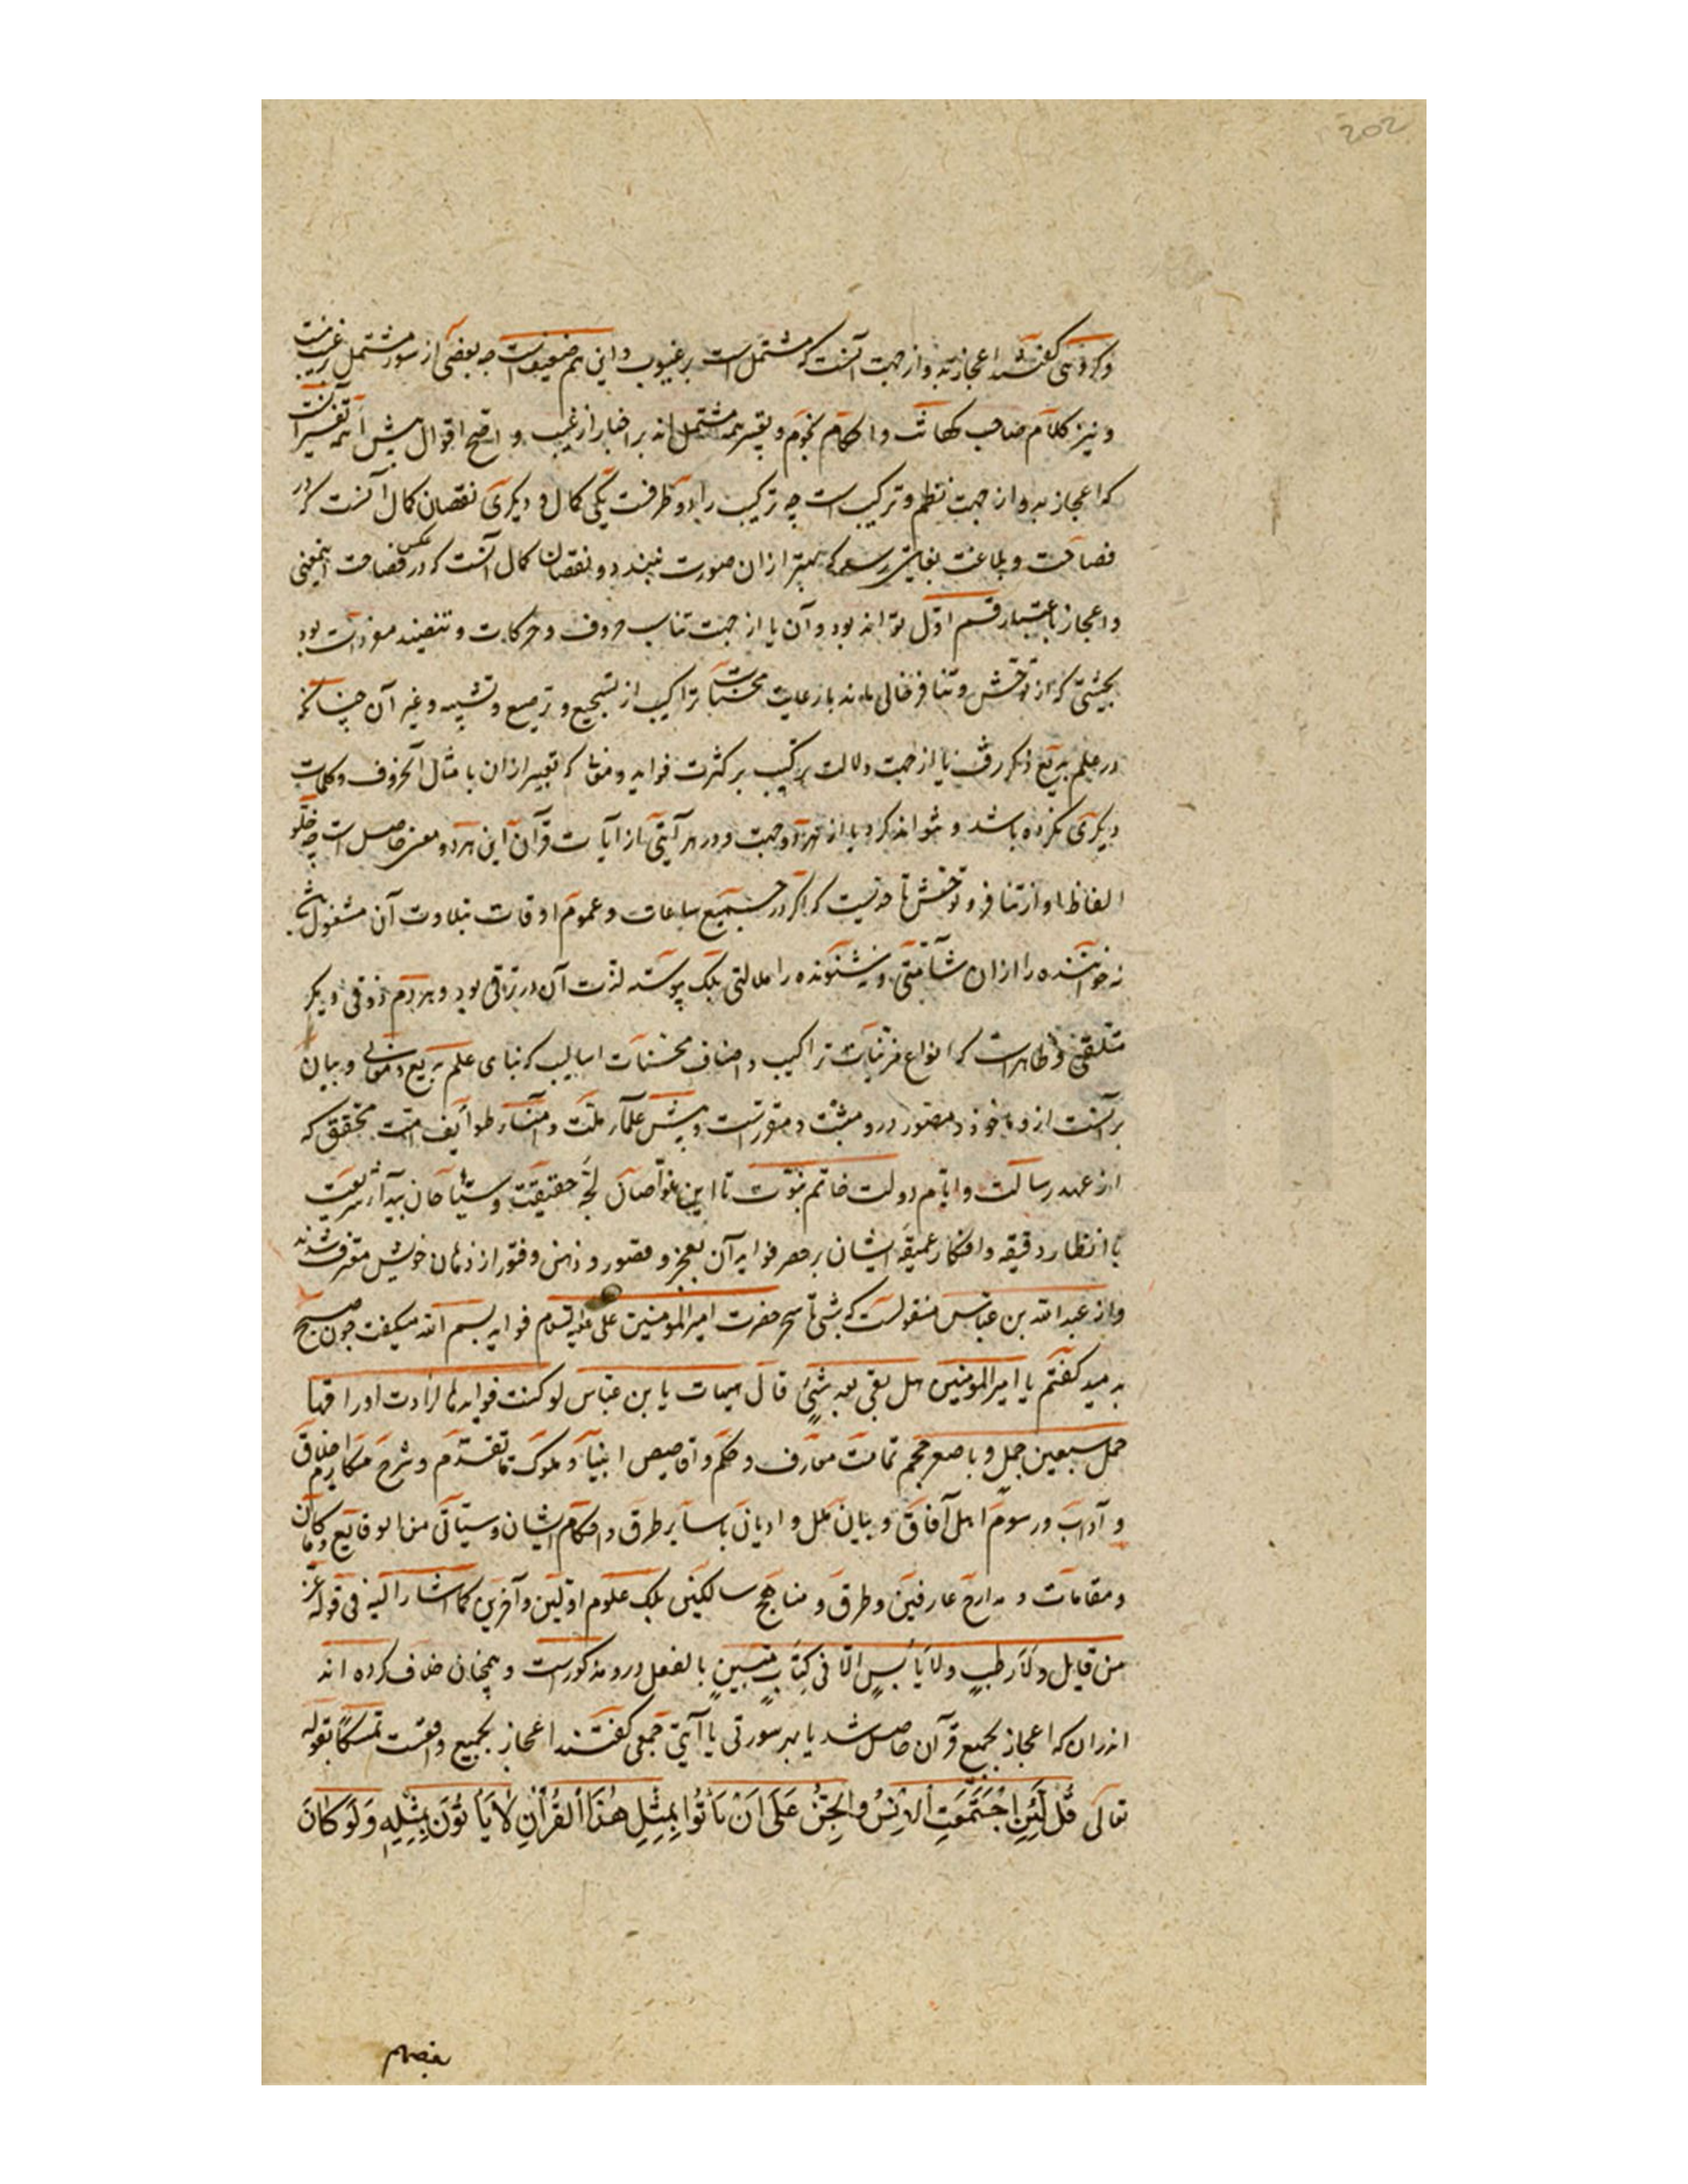 202
وکروهی کفتند اعجاز بدو از جهت آنست که مشتملست بر غیوب و این هم ضعیفست چه بعضی از سور مشتمل بر غیب نیست
و نیز کلام صاحب کهانت و احکام نجوم و همه مشتمل اند بر اخبار از غیب و اصح اقوال پیش ائمه تفسیر آنست
که اعجاز بدو از جهت نظم و ترکیبست چه ترکیب را دو طرفست یکی کمال و دیکری نقصان کمال آنست که در
فصاحت و بلاغت بغایتی رسد که بهتر ازان صورت نبندد و نقصان کمال آنست که در فصاحت عکس اینمعنی
و اعجاز باعتبار قسم اول تواند بود و آن یا از جهت تناسب حروف و حرکات و مفردات بود
بحیثیتی که از توحش و تنافر خالی ماند با رعایت محسنات تراکیب از تسجیع و ترصیع و تشبیه و غیر آن چنانکه
در علم بدیع ذکر رفت یا از جهت دلالت ترکیب بر کثرت فواید و معانی که تعبیر ازان بامثال آن حروف و کلمات
دیکری نکرده باشد و نتواند کرد یا از هر دو جهت و در هر آیتی از آیات قرآن این هر دو معنی حاصلست چه خلو
الفاظ او از تنافر و توحش تا حدیست که اکر در جمیع ساعات و عموم اوقات بتلاوت آن مشغول باشند
نه خواننده را ازان سآمتی و نه شنونده را ملالتی بلک پیوسته لذت آن در ترقی بود و هر دم ذوقی دیکر
متلقی و ظاهرست که انواع مزینات تراکیب و اصناف محسنات اسالیب که بنای علم بدیع و معانی و بیان
برآنست ازو ماخوذ و مقصور درو مثبت و مقررست و پیش علماء ملت و طوایف امت محقق که
از عهد رسالت و ایام دولت خاتم نبوت تا این غواصان لجه حقیقت و سیاحان بیداء شریعت
با انظار دقیقه و افکار عمیقه ایشان بر حصر فواید آن بعجز و قصور و ذهنی و فتور از ذهان خویش معترف شدند
و از عبدالله بن عباس منقولست که شبی تا سحر حضرت امیرالمومنین علی علیه السلام فواید بسم الله میکفت چون صبح
بدمید کفتم یا امیرالمومنین هل بقی بعد شیء قال هیهات یا بن عباس لو کتبت فوایدها لزادت اوراقها
حمل سبعین جمل و با صغر حجم تمامت معارف و حکم و اقاصیص انبیا و ملوک ما تقدم و شرح مکارم اخلاق
و آداب و رسوم اهل آفاق و بیان ملل و ادیان با سایر طرق و احکام ایشان و سیاتی من الوقایع و ماکان
و مقامات و مدارج عارفین و طرق و مناهج سالکین بلک علوم اولین و آخرین کما اشار الیه فی قوله عز
من قایل وَلا رَطبٍ ولا یَابسٍ الّا فی کِتَابٍ مُّبینٍ بالفعل درو مذکورست و همچنان خلاف کرده اند
اندران که اعجاز بجمیع قرآن حاصل شد یا بهر سورتی یا آیتی جمعی کفتند اعجاز بجمیع واقعست تمسکا بقوله
تعالی قُل لَّئِنِ اجْتَمَعَتِ الاِنْسُ والْجِنُّ عَلَی اَنْ یَأتُوا بِمِثْلِ هٰذَا القُرْاٰنِ لَا یَأتُوْنَ بِمِثْلِهِ وَلَو کَانَ
بعضهم